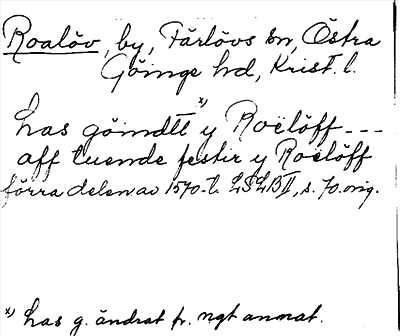 Roalöv, by, Färlövs sn, Östra
Göinge hd, Krist. l.
has göindtt x) y Roëlöff ---
aff tuende festir y Roëlöff
förra delen av 1570-t. LSLB II, s. 70. orig.
x) has g. ändrat fr. ngt annat.